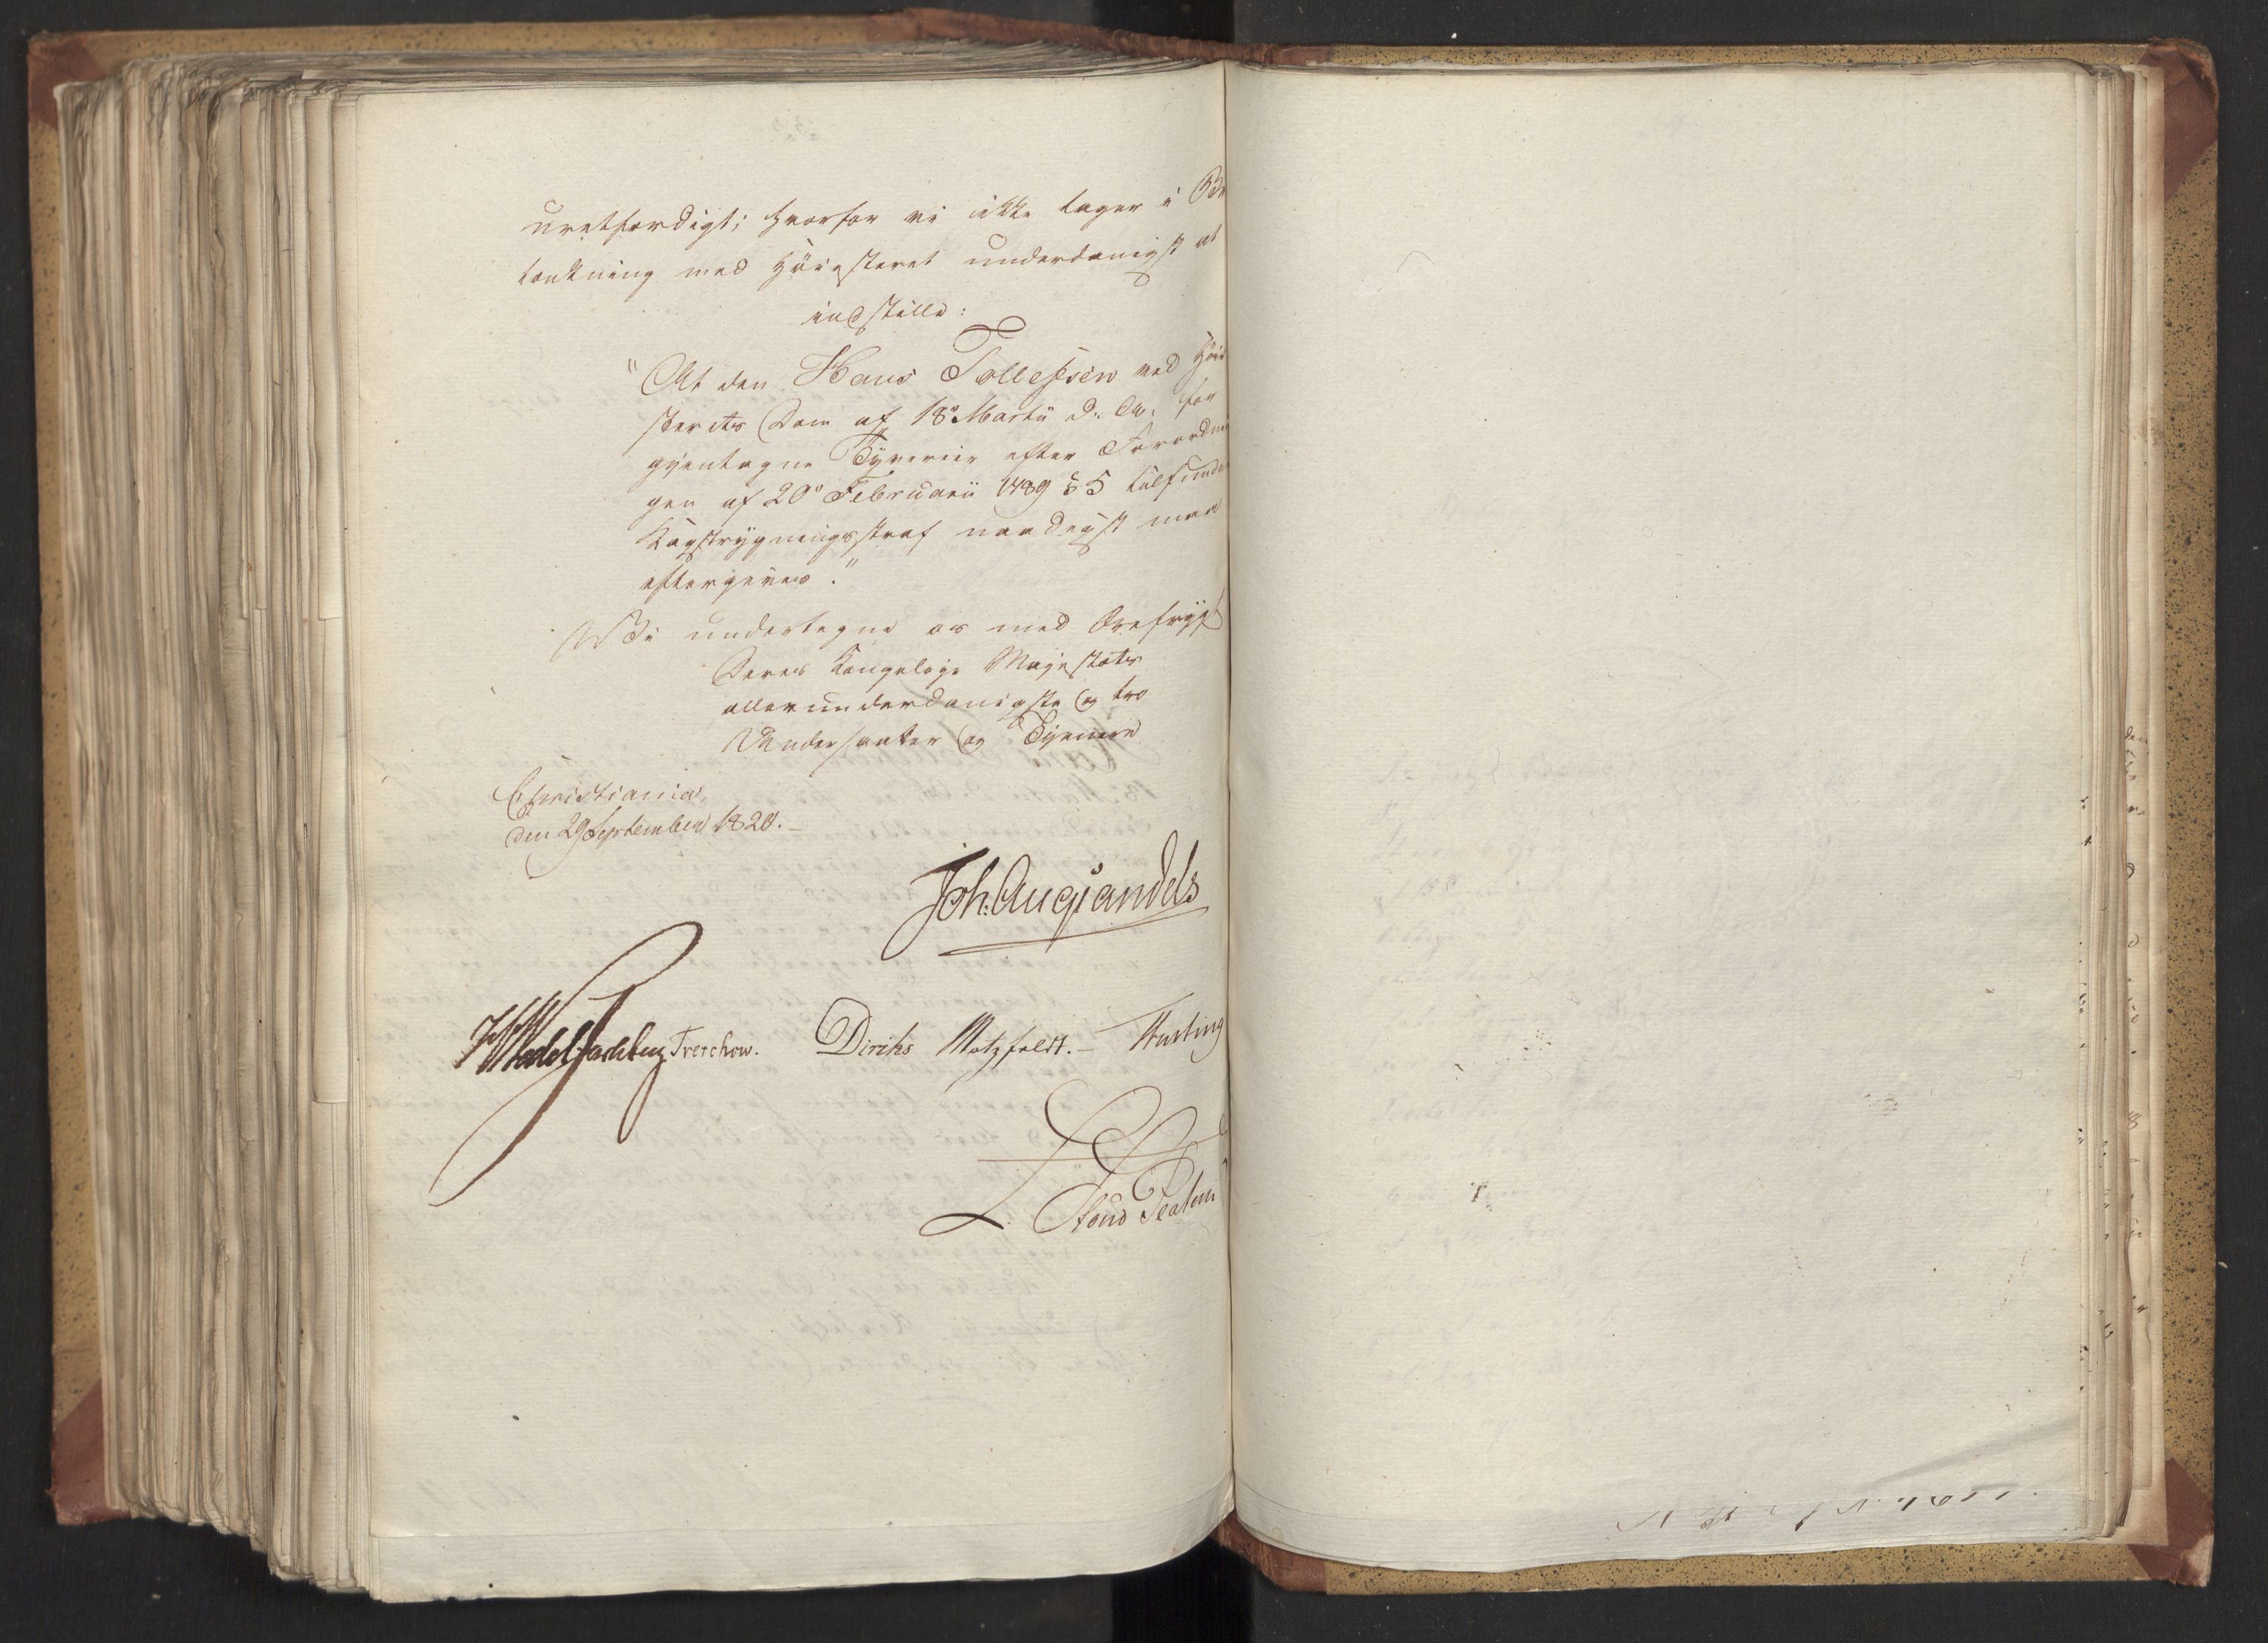 uretfærdigt; hvorfor vi ikke tager i Be
tænkning med Høiesteret underdanigst at
indstille:
"At den Hans Tollefsen ved Høie
sterets Dom af 18de Martii d. A. for
gjentagne Tyverier efter Forordnin
gen af 20de Februarii 1789 § 5 tilfundne
Kagstrygningsstraf naadigst maa
eftergives."
Vi undertegne os med Ærefrygt
Deres Kongelige Majestæts
allerunderdanigste og tro
Undersaatter og Tjenere
Christiania,
den 29 September 1820.
Joh: Aug Sandels
Wedel Jarlsberg Treschow. Diriks Motzfeldt. Fasting